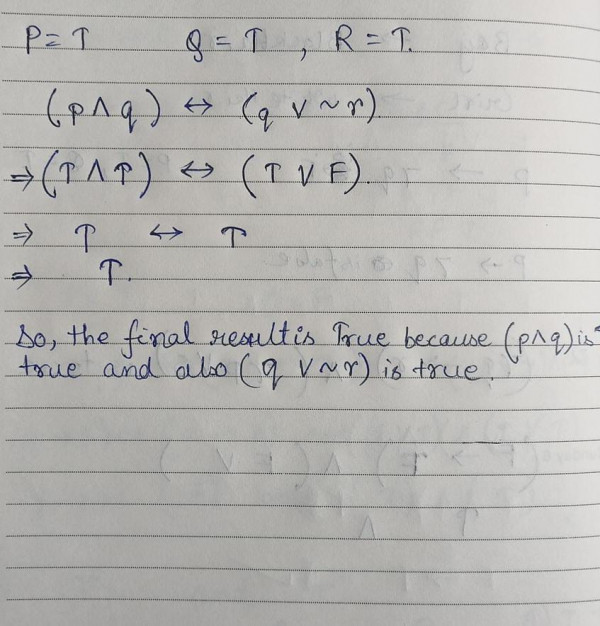 P = T Q = T , R = T.
(p ∧ q) ↔ (q ∨ ~ r).
⇒ (T ∧ T) ↔ (T ∨ F).
⇒ T ↔ T
⇒ T.
So, the final result is True because (p∧q) is
true and also (q ∨ ~ r) is true.